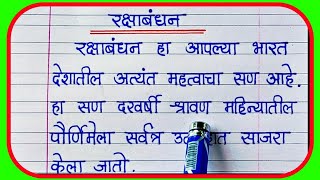 रक्षाबंधन
रक्षाबंधन हा आपल्या भारत
देशातील अत्यंत महत्वाचा सण आहे.
हा सण दरवर्षी श्रावण महिन्यातील
पौर्णिमेला सर्वत्र साजरा
केला जातो.